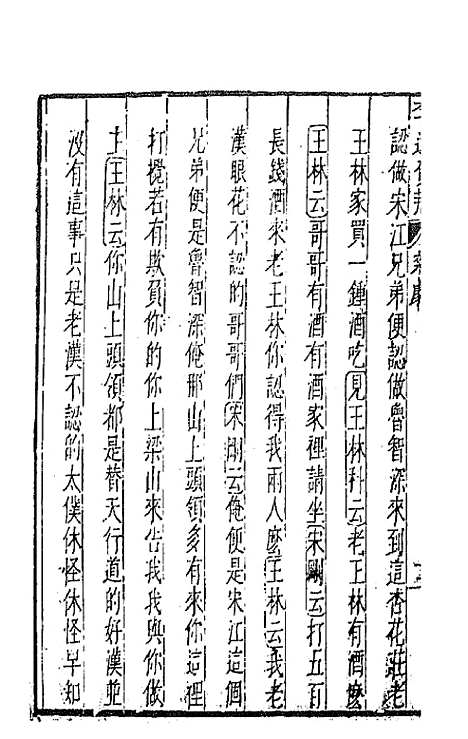 認做宋江兄弟便認做魯智深來到這杏花莊老
王林家買一鍾酒吃見王林科云老王林有酒麽
王林云哥哥有酒有酒家裡請坐宋剛云打五百
長錢酒來老王林你認得我兩人麽王林云我老
漢眼花不認的哥哥們宋剛云俺便是宋江這個
兄弟便是魯智深俺那山上頭領多有來你這裡
打攪若有欺負你的你上梁山來告我我與你做
主王林云你山上頭領都是替天行道的好漢並
沒有這事只是老漢不認的太僕休怪休怪早知